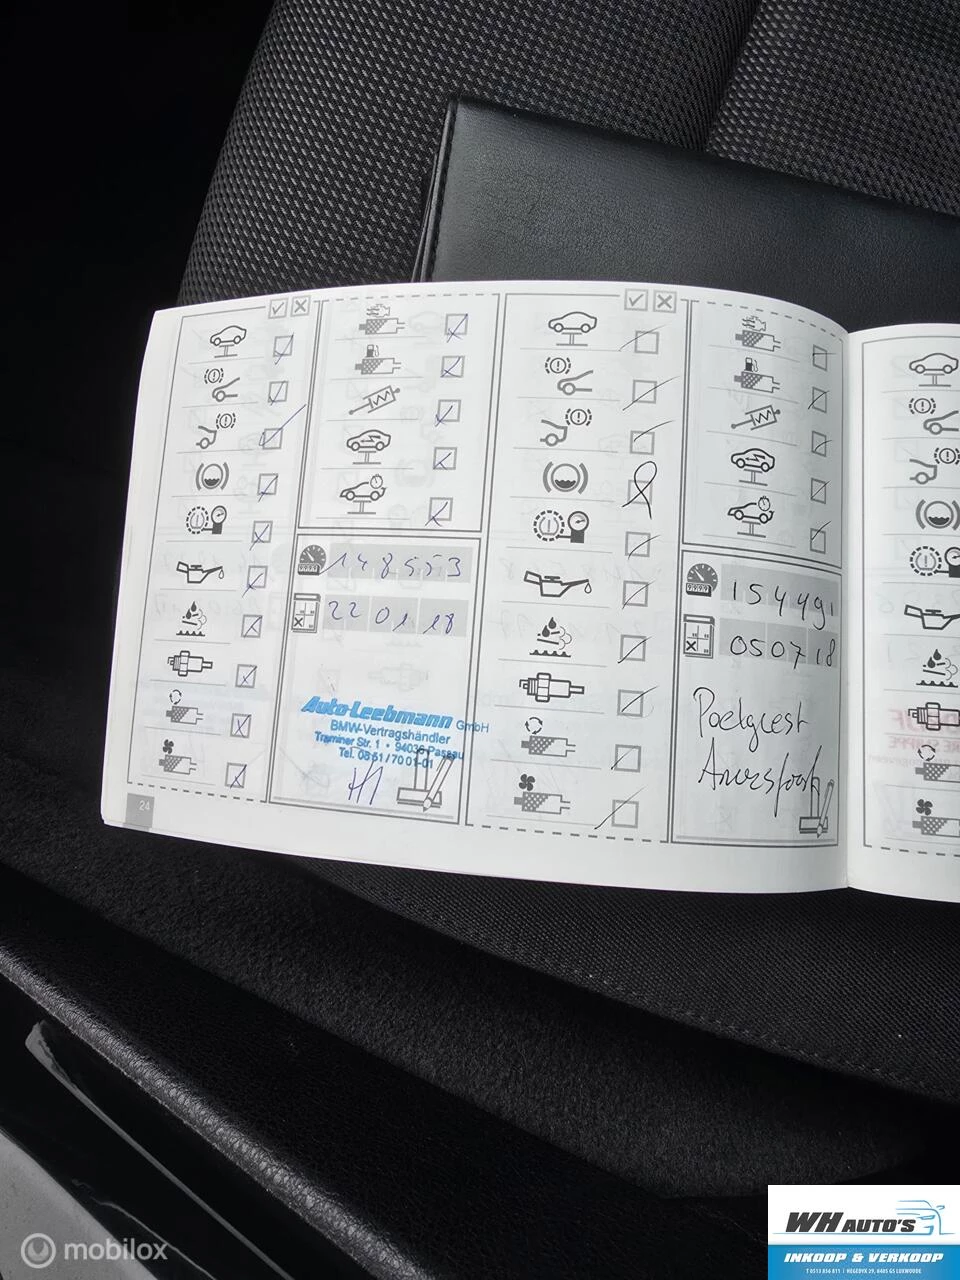 148553
22 01 18
Auto-Leebmann GmbH
BMW-Vertragshändler
Traminer Str. 1 • 94036 Passau
Tel. 08 51 / 70 01-01
24
154491
050718
Poelgeest
Amersfoort
mobilox
WH AUTO'S
INKOOP & VERKOOP
T 0513 856 811 | HEGEDYK 29, 8405 GS LUXWOUDE